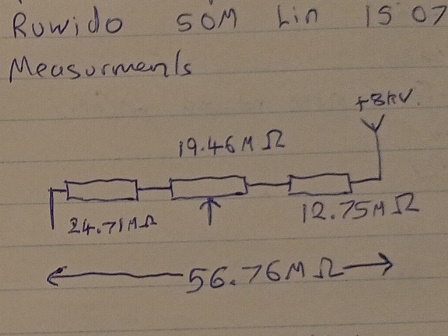 Ruwido 50M Lin 15 07
Measurments
+8kV.
19.46MΩ
24.71MΩ
12.75MΩ
56.76MΩ